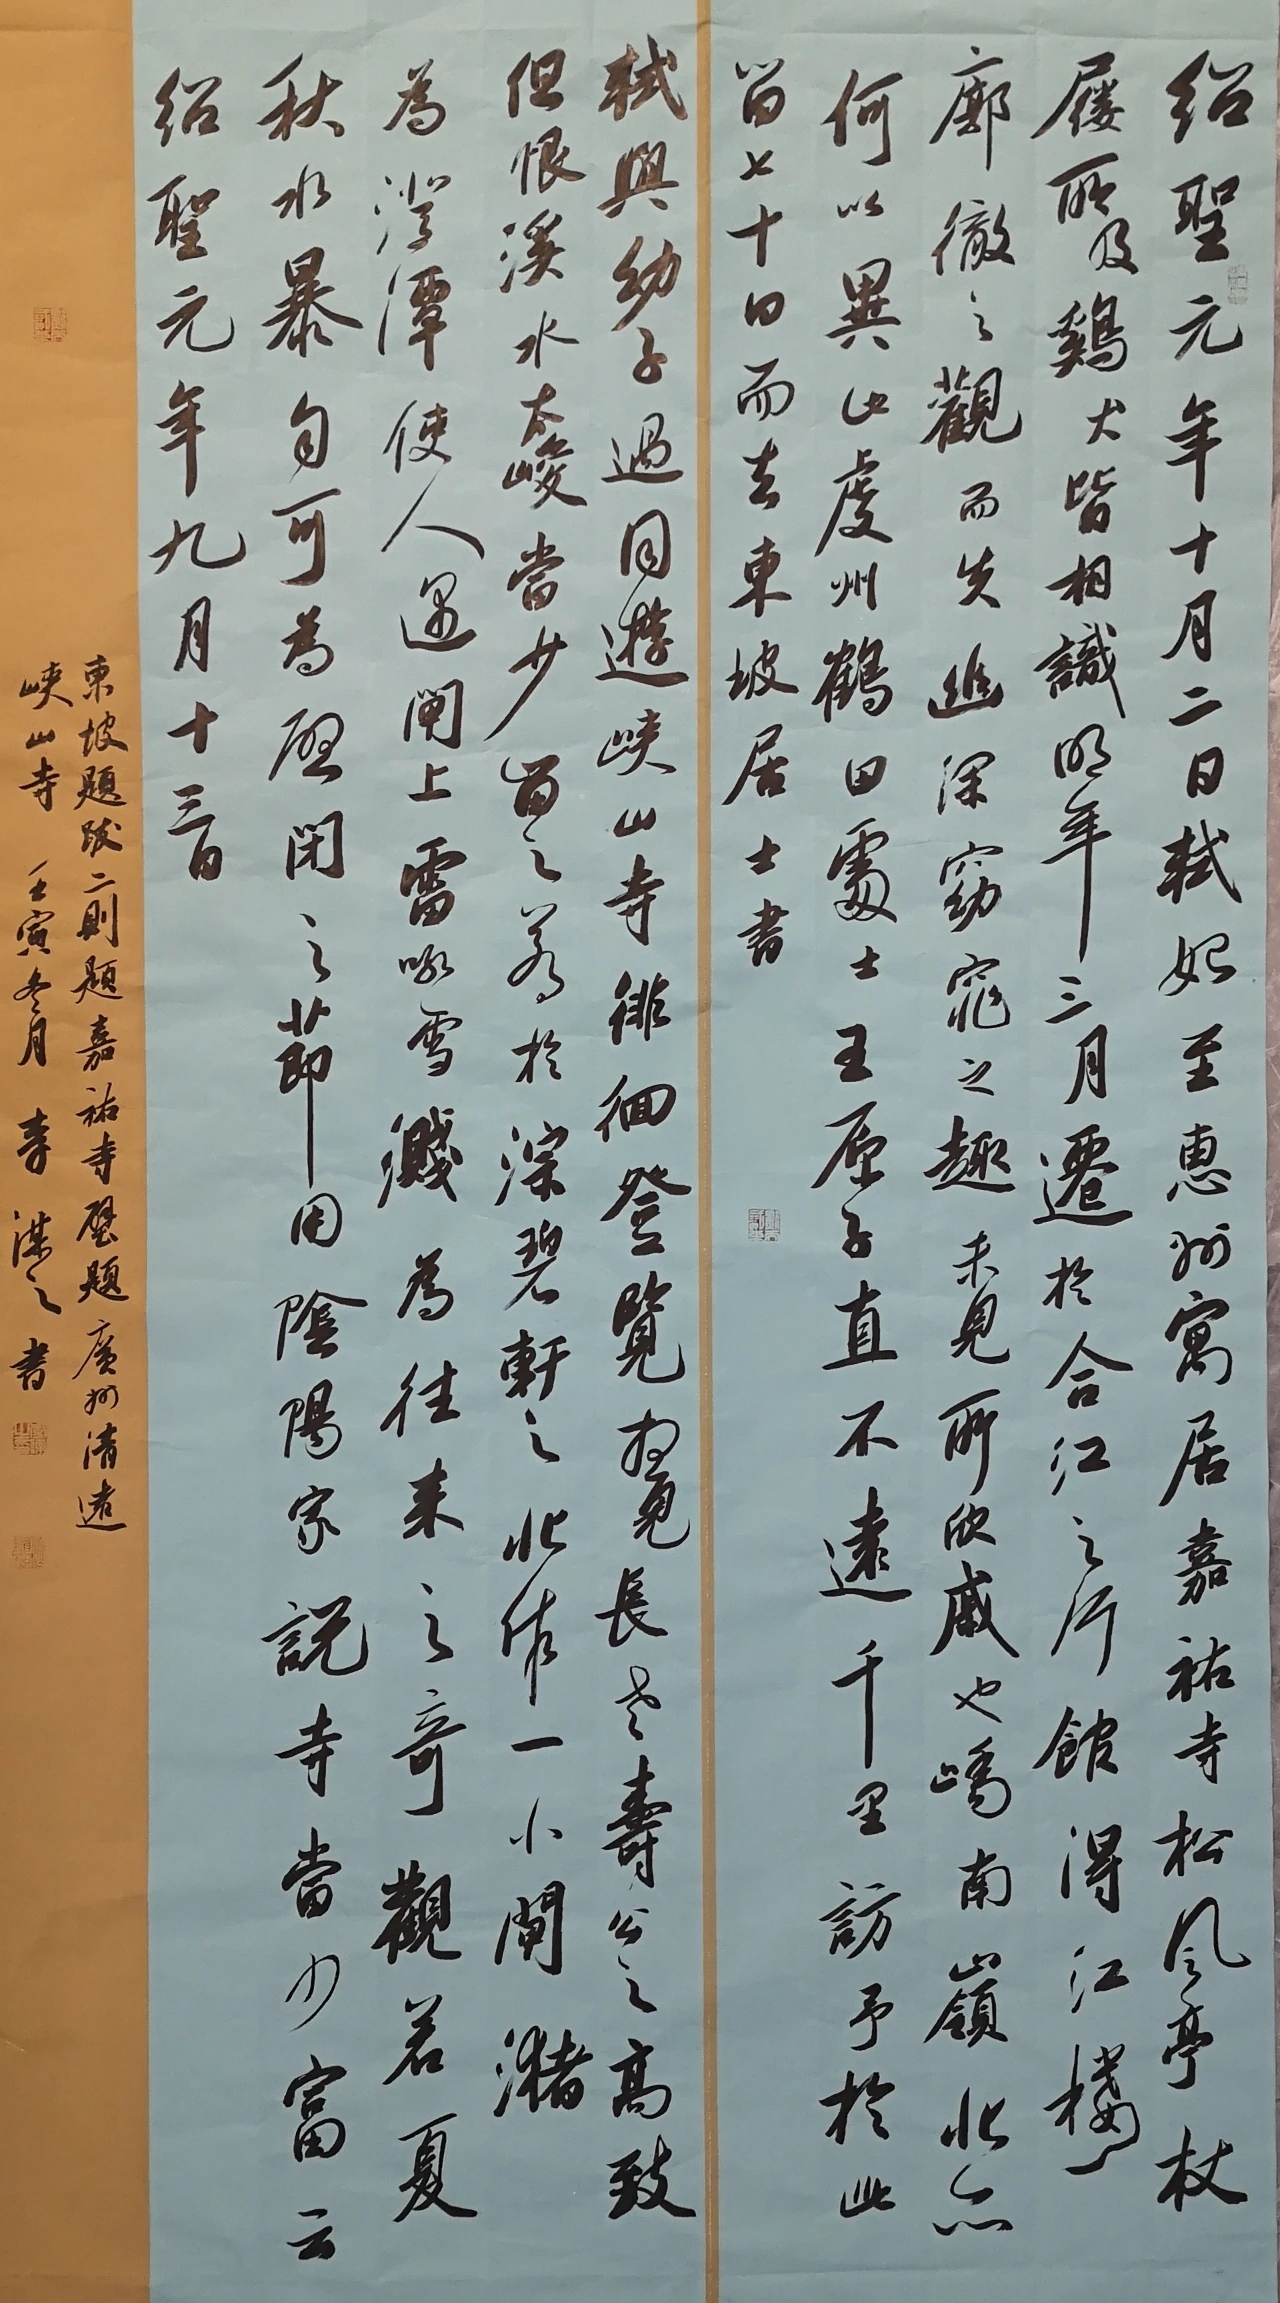 紹聖元年十月二日軾始至惠州寓居嘉祐寺松風亭杖
屨所及鷄犬皆相識明年三月遷於合江之行館得江樓
廓徹之觀而失幽深窈窕之趣未見所欣戚也嶠南嶺北亦
何以異此虔州鶴田處士王原子直不遠千里訪予於此
留七十日而去東坡居士書
軾與幼子過同遊峽山寺徘徊登覽想見長老壽公之高致
但恨溪水太峻當少留之若於淙碧軒之北作一小閘瀦
為澄潭使人過閘上雷吼雪濺為往來之奇觀若夏
秋水暴自可為啟閉之節用陰陽家說寺當少富云
紹聖元年九月十三日
東坡題跋二則題嘉祐寺壁題廣州清遠
峽山寺 壬寅冬月 李謀之書